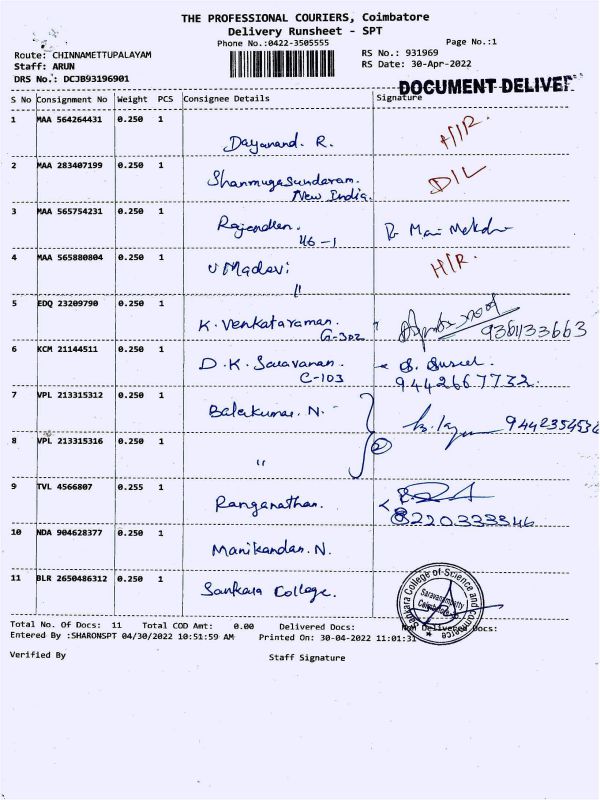 THE PROFESSIONAL COURIERS, Coimbatore
Delivery Runsheet - SPT
Phone No.:0422-3505555
Page No.:1
Route: CHINNAMETTUPALAYAM
RS No.: 931969
Staff: ARUN
RS Date: 30-Apr-2022
DRS No.: DCJB93196901
DOCUMENT DELIVER
S No Consignment No Weight PCS Consignee Details Signature
1 MAA 564264431 0.250 1
Dayanand. R. H/R.
2 MAA 283407199 0.250 1
Shanmugasundaram. D/L
New India.
3 MAA 565754231 0.250 1
Rajendlen.
46-1
4 MAA 565880804 0.250 1
V Madevi H/R.
"
5 EDQ 23209790 0.250 1
K. Venkataraman.
G-302 9361133663
6 KCM 21144511 0.250 1
D.K. Saravanan.
C-103 9442667732.
7 VPL 213315312 0.250 1
Balakumar. N.
8 VPL 213315316 0.250 1
" 2
9 TVL 4566807 0.255 1
Ranganathan.
8220333346
10 NDA 904628377 0.250 1
Manikandan. N.
11 BLR 2650486312 0.250 1
Sankara College.
Sankara College of Science and Commerce
Saravanampatty
Coimbatore
Total No. Of Docs: 11 Total COD Amt: 0.00 Delivered Docs: Non Delivered Docs:
Entered By :SHARONSPT 04/30/2022 10:51:59 AM Printed On: 30-04-2022 11:01:31
Verified By Staff Signature